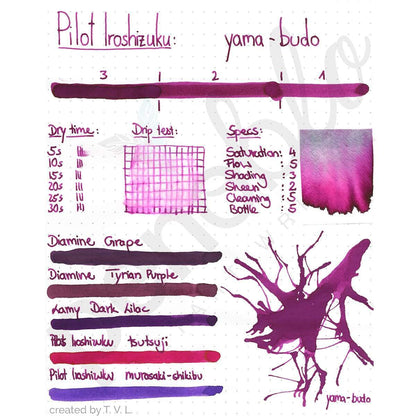 Pilot Iroshizuku: yama-budo
3 2 1
Dry time: Drip test: Specs:
5s
10s
15s
20s
25s
30s
Saturation: 4
Flow : 5
Shading : 3
Sheen : 2
Cleaning : 5
Bottle : 5
Diamine Grape
Diamine Tyrian Purple
Lamy Dark Lilac
Pilot Iroshizuku tsutsuji
Pilot Iroshizuku murasaki-shikibu
yama-budo
created by T. V. L.